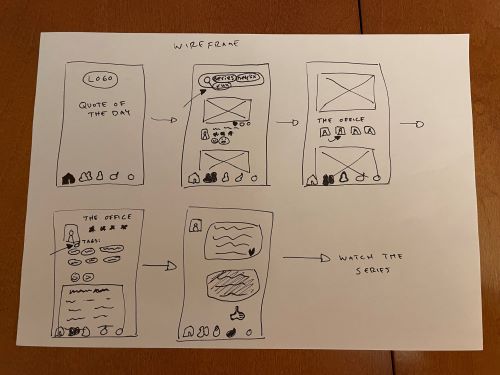 WIREFRAME
LOGO
QUOTE OF
THE DAY
series
THE OFFICE
THE OFFICE
TAGS:
WATCH THE
SERIES